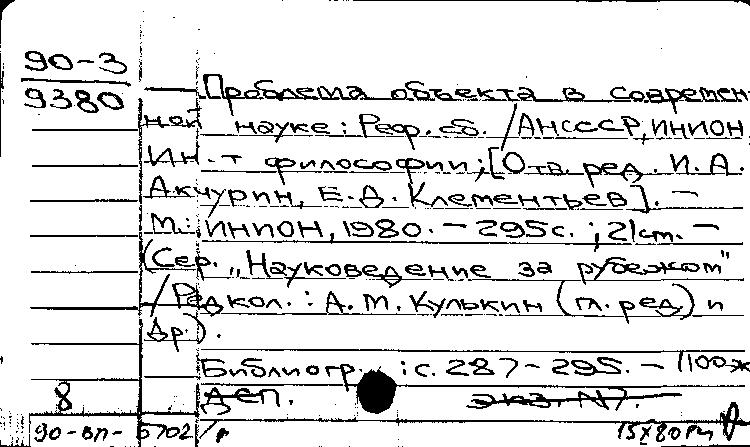 90-3
9380
Проблема объекта в современ
ной науке: Реф. сб. / АНСССР, ИНИОН,
Ин-т философии; [Отв. ред. И. А.
Акчурин, Е. Д. Клементьев]. –
М.: ИНИОН, 1980. – 295с.; 21см. –
(Сер. „Науковедение за рубежом"
/ Редкол.: А. М. Кулькин (гл. ред.) и
др).
Библиогр.: с. 287–295. –
8 ДСП. экз. N7.
90-вп- 5702